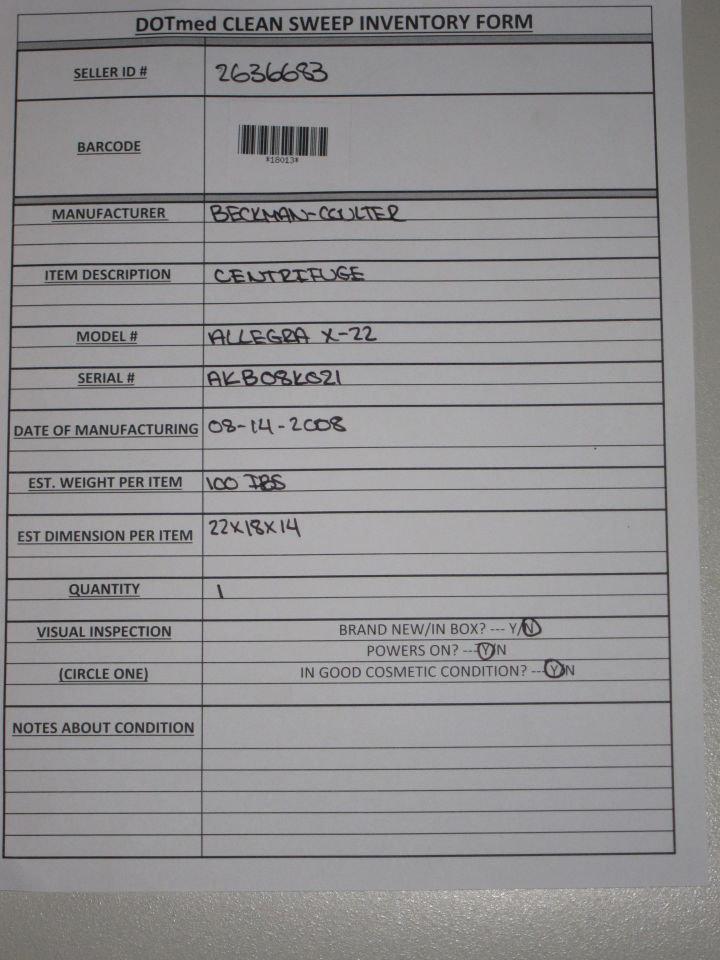 DOTmed CLEAN SWEEP INVENTORY FORM
SELLER ID # 2636683
BARCODE
*18013*
MANUFACTURER BECKMAN-COULTER
ITEM DESCRIPTION CENTRIFUGE
MODEL # ALLEGRA X-22
SERIAL # AKB08K021
DATE OF MANUFACTURING 08-14-2008
EST. WEIGHT PER ITEM 100 lBS
EST DIMENSION PER ITEM 22X18X14
QUANTITY 1
VISUAL INSPECTION BRAND NEW/IN BOX? --- Y/N
POWERS ON? ---Y/N
(CIRCLE ONE) IN GOOD COSMETIC CONDITION? ---Y/N
NOTES ABOUT CONDITION